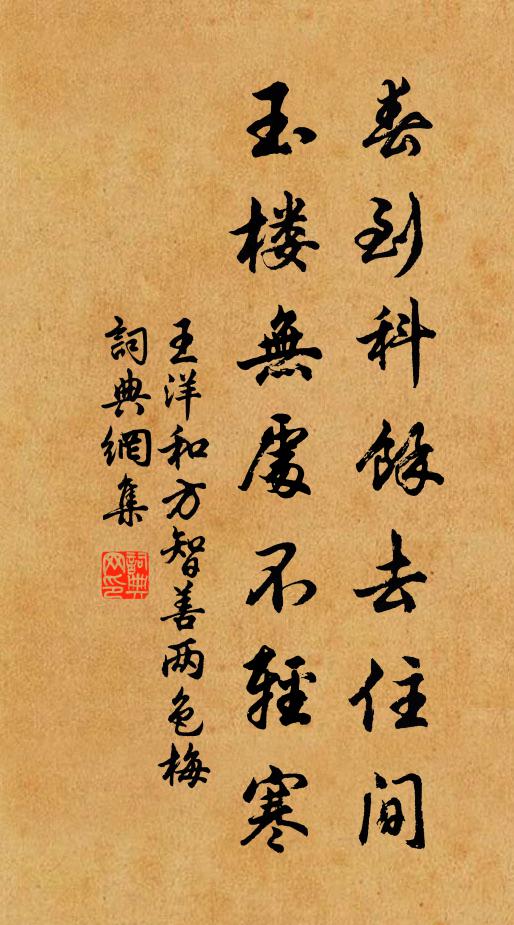 春到科餘去住間
玉楼無處不輕寒
王洋和方智善两色梅
詞典網集
詞典網印